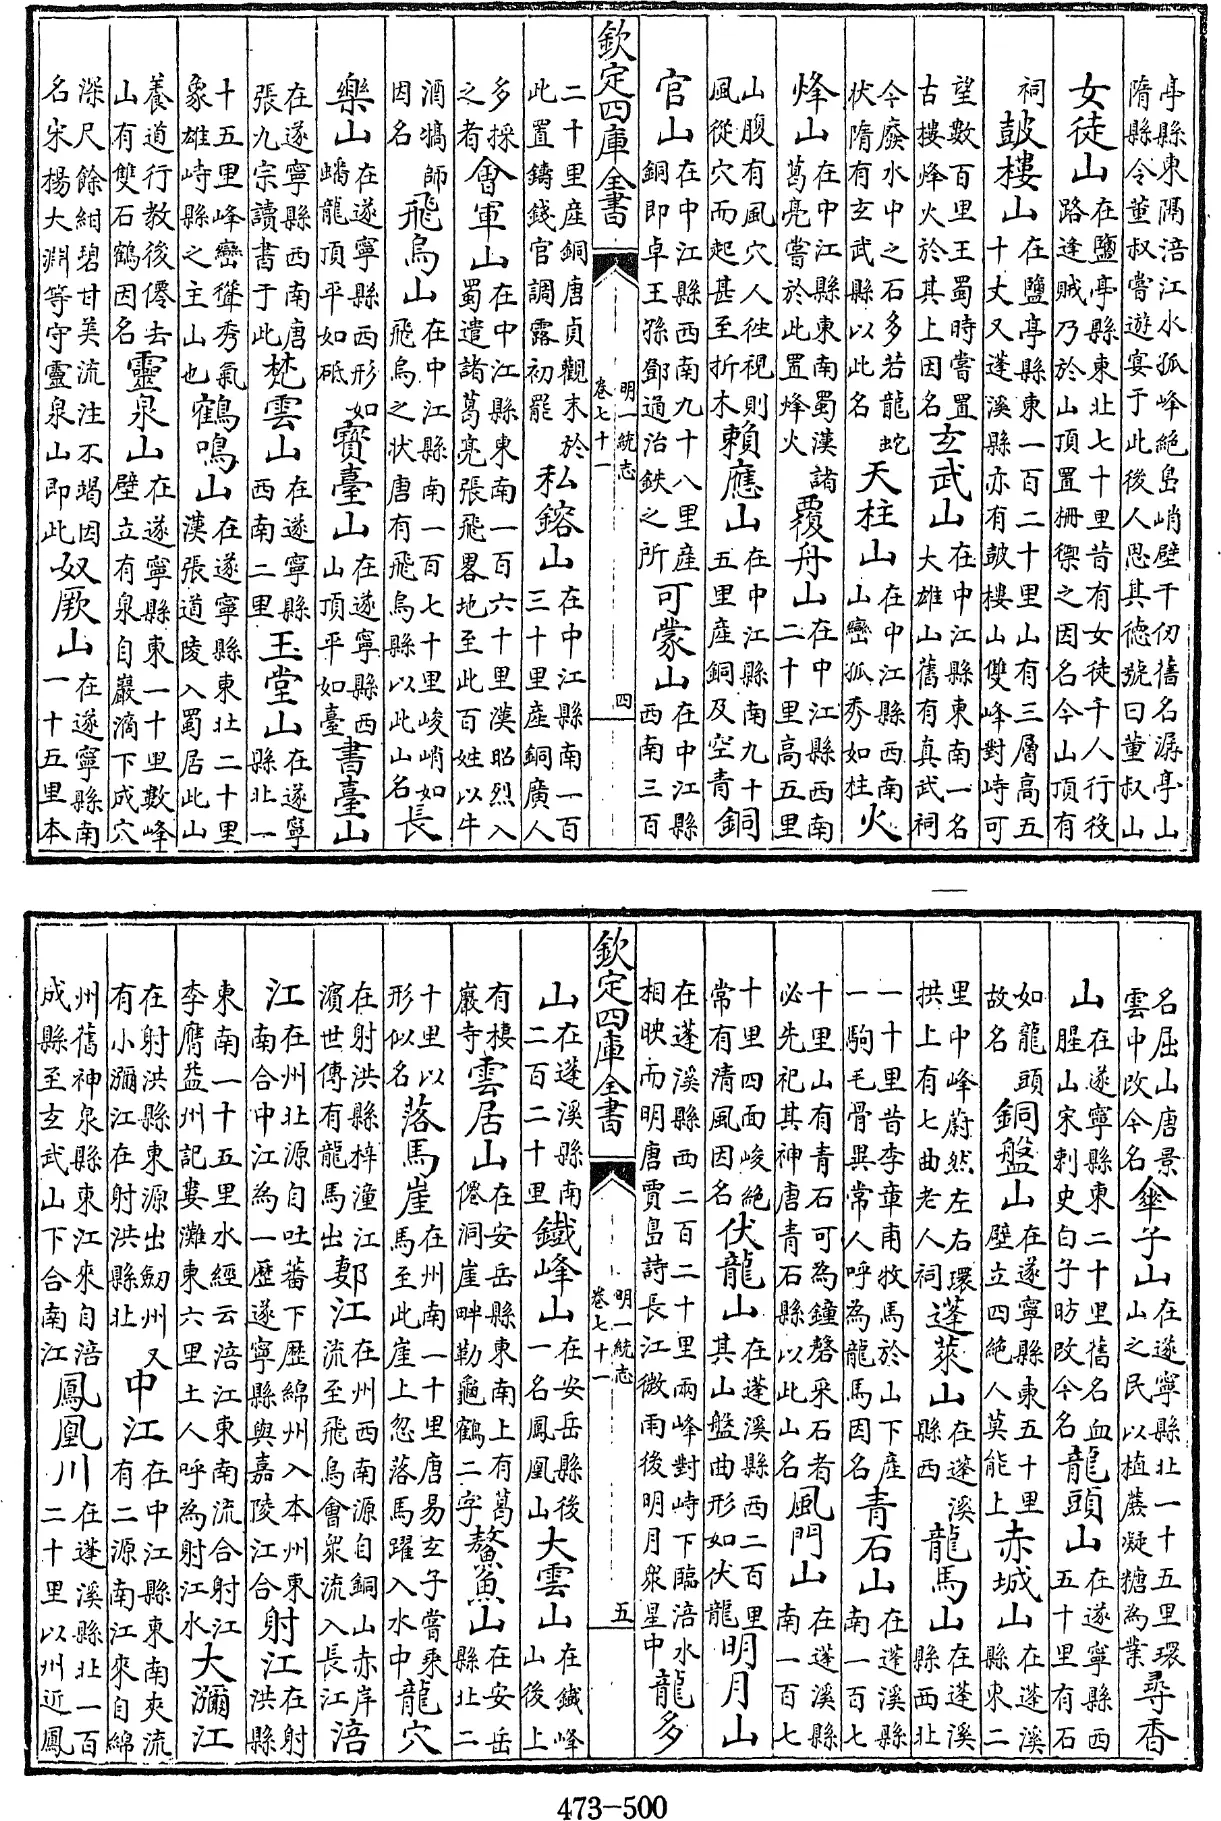 亭縣東隅涪江水孤峰絶島峭壁千仞舊名潺亭山隋縣令董叔嘗遊宴于此後人思其德號曰董叔山
女徒山在鹽亭縣東北七十里昔有女徒千人行役路逢賊乃於山頂置柵禦之因名今山頂有
祠鼓樓山在鹽亭縣東一百二十里山有三層高五十丈又蓬溪縣亦有鼓樓山雙峰對峙可
望數百里王蜀時嘗置古樓烽火於其上因名玄武山在中江縣東南一名大雄山舊有真武祠
今廢水中之石多若龍蛇伏隋有玄武縣以此名天柱山在中江縣西南山巒孤秀如柱火
烽山在中江縣東南蜀漢諸葛亮嘗於此置烽火覆舟山在中江縣西南二十里高五里
山腹有風穴人往視則風從穴而起甚至折木賴應山在中江縣南九十五里產銅及空青銅
官山在中江縣西南九十八里産銅即卓王孫鄧通治鉄之所可蒙山在中江縣西南三百
欽定四庫全書 明一統志 卷七十一 四
二十里産銅唐貞觀末於此置鑄錢官調露初罷私鎔山在中江縣南一百三十里産銅廣人
多採之者會軍山在中江縣東南一百六十里漢昭烈入蜀遣諸葛亮張飛畧地至此百姓以牛
酒犒師因名飛烏山在中江縣南一百七十里峻峭如飛烏之状唐有飛烏縣以此山名長
樂山在遂寧縣西形如蟠龍頂平如砥寳臺山在遂寧縣西山頂平如臺書臺山
在遂寧縣西南唐張九宗讀書于此梵雲山在遂寧縣西南二里玉堂山在遂寧縣北一
十五里峰巒聳秀氣象雄峙縣之主山也鶴鳴山在遂寧縣東北二十里漢張道陵入蜀居此山
養道行教後僊去山有雙石鶴因名靈泉山在遂寧縣東一十里數峰壁立有泉自巖滴下成穴
深尺餘紺碧甘美流注不竭因名宋楊大淵等守靈泉山即此奴厥山在遂寧縣南一十五里本
名屈山唐景雲中改今名傘子山在遂寧縣北一十五里環山之民以植蔗凝糖為業尋香
山在遂寧縣東二十里舊名血腥山宋刺史白子昉改今名龍頭山在遂寧縣西五十里有石
如龍頭故名銅盤山在遂寧縣東五十里壁立四絶人莫能上赤城山在蓬溪縣東二
里中峰蔚然左右環拱上有七曲老人祠蓬萊山在蓬溪縣西龍馬山在蓬溪縣西北
一十里昔李章甫牧馬於山下産一駒毛骨異常人呼為龍馬因名青石山在蓬溪縣南一百七
十里山有青石可為鐘磬采石者必先祀其神唐青石縣以此山名風門山在蓬溪縣南一百七
十里四面峻絶常有清風因名伏龍山在蓬溪縣西二百里其山盤曲形如伏龍明月山
在蓬溪縣西二百二十里兩峰對峙下臨涪水相映而明唐賈島詩長江微雨後明月衆星中龍多
欽定四庫全書 明一統志 卷七十一 五
山在蓬溪縣南二百二十里鐵峰山在安岳縣後一名鳳凰山大雲山在鐵峰山後上
有棲巖寺雲居山在安岳縣東南上有葛僊洞崖畔勒龜鶴二字鰲魚山在安岳縣北二
十里以形似名落馬崖在州南一十里唐易玄子嘗乘馬至此崖上忽落馬躍入水中龍穴
在射洪縣梓潼江濱世傳有龍馬出郪江在州西南源自銅山赤岸流至飛烏會衆流入長江涪
江在州北源自吐蕃下歷綿州入本州東南合中江為一歴遂寧縣與嘉陵江合射江在射洪縣
東南一十五里水經云涪江東南流合射江李膺益州記婁灘東六里土人呼為射江水大瀰江
在射洪縣東源出劒州又有小瀰江在射洪縣北中江在中江縣東南夾流有二源南江來自綿
州舊神泉縣東江來自涪成縣至玄武山下合南江鳳凰川在蓬溪縣北一百二十里以州近鳳
473-500